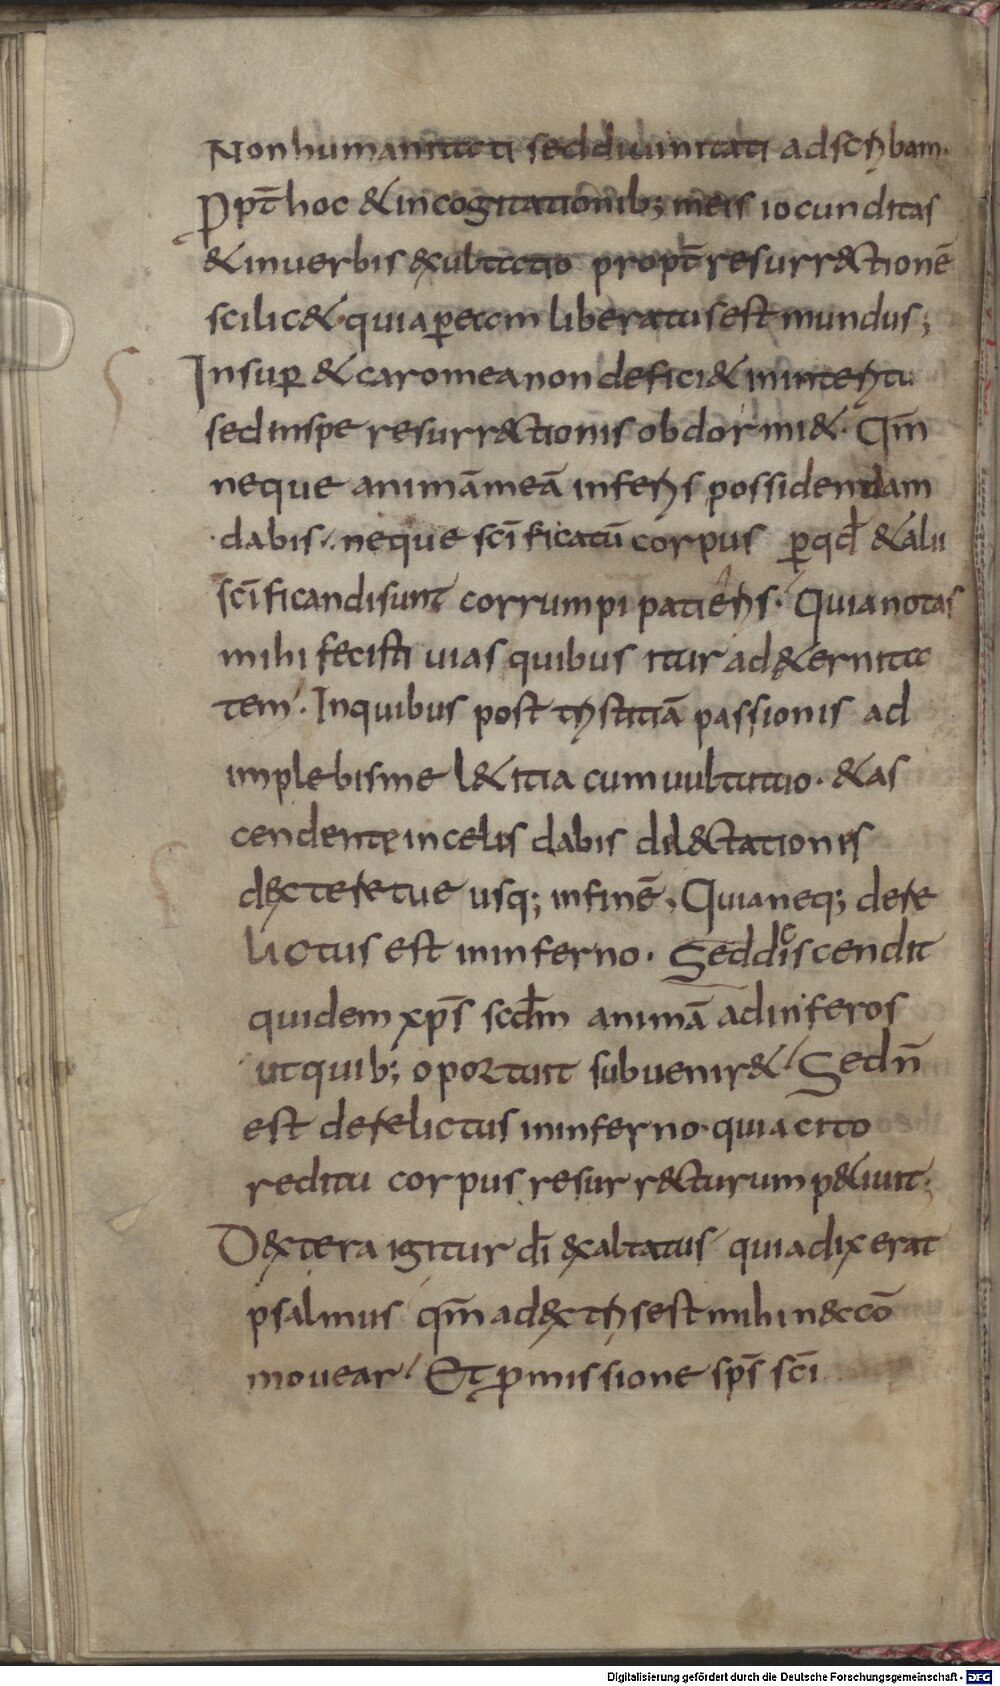 Non humanitati sed diuinitati adscribam.
Ppt̄ hoc & in cogitationib; meis iocunditas
& in uerbis exultatio propt̄ resurrectionē
scilic& quia p̱ eam liberatus est mundus;
Insup̱ & caro mea non defici& in interitu
sed in spe resurrectionis obdormi&. Qm̄
neque animā meā inferis possidendam
dabis. neque sc̄ificatū corpus p̱ qđ & alii
sc̄ificandi sunt corrumpi patieris. Quia notas
mihi fecisti uias quibus itur ad &ernita
tem. In quibus post tristitiā passionis ad
implebis me l&itia cum uultu tuo. & as
cendente in celis dabis delectationis
dextere tue usq; in finē. Quia neq; dere
lictus est in inferno. Sed discendit
quidem xp̄s scđm animā ad inferos
ut quib; oportuit subuenir&. Sed n̄
est derelictus in inferno. quia cito
reditu corpus resurrecturum p&iuit;
Dextera igitur dī exaltatus quia dixerat
psalmus qm̄ a dextris est mihi nec cō
mouear. Et p̱missione sp̄s sc̄i
Digitalisierung gefördert durch die Deutsche Forschungsgemeinschaft - DFG